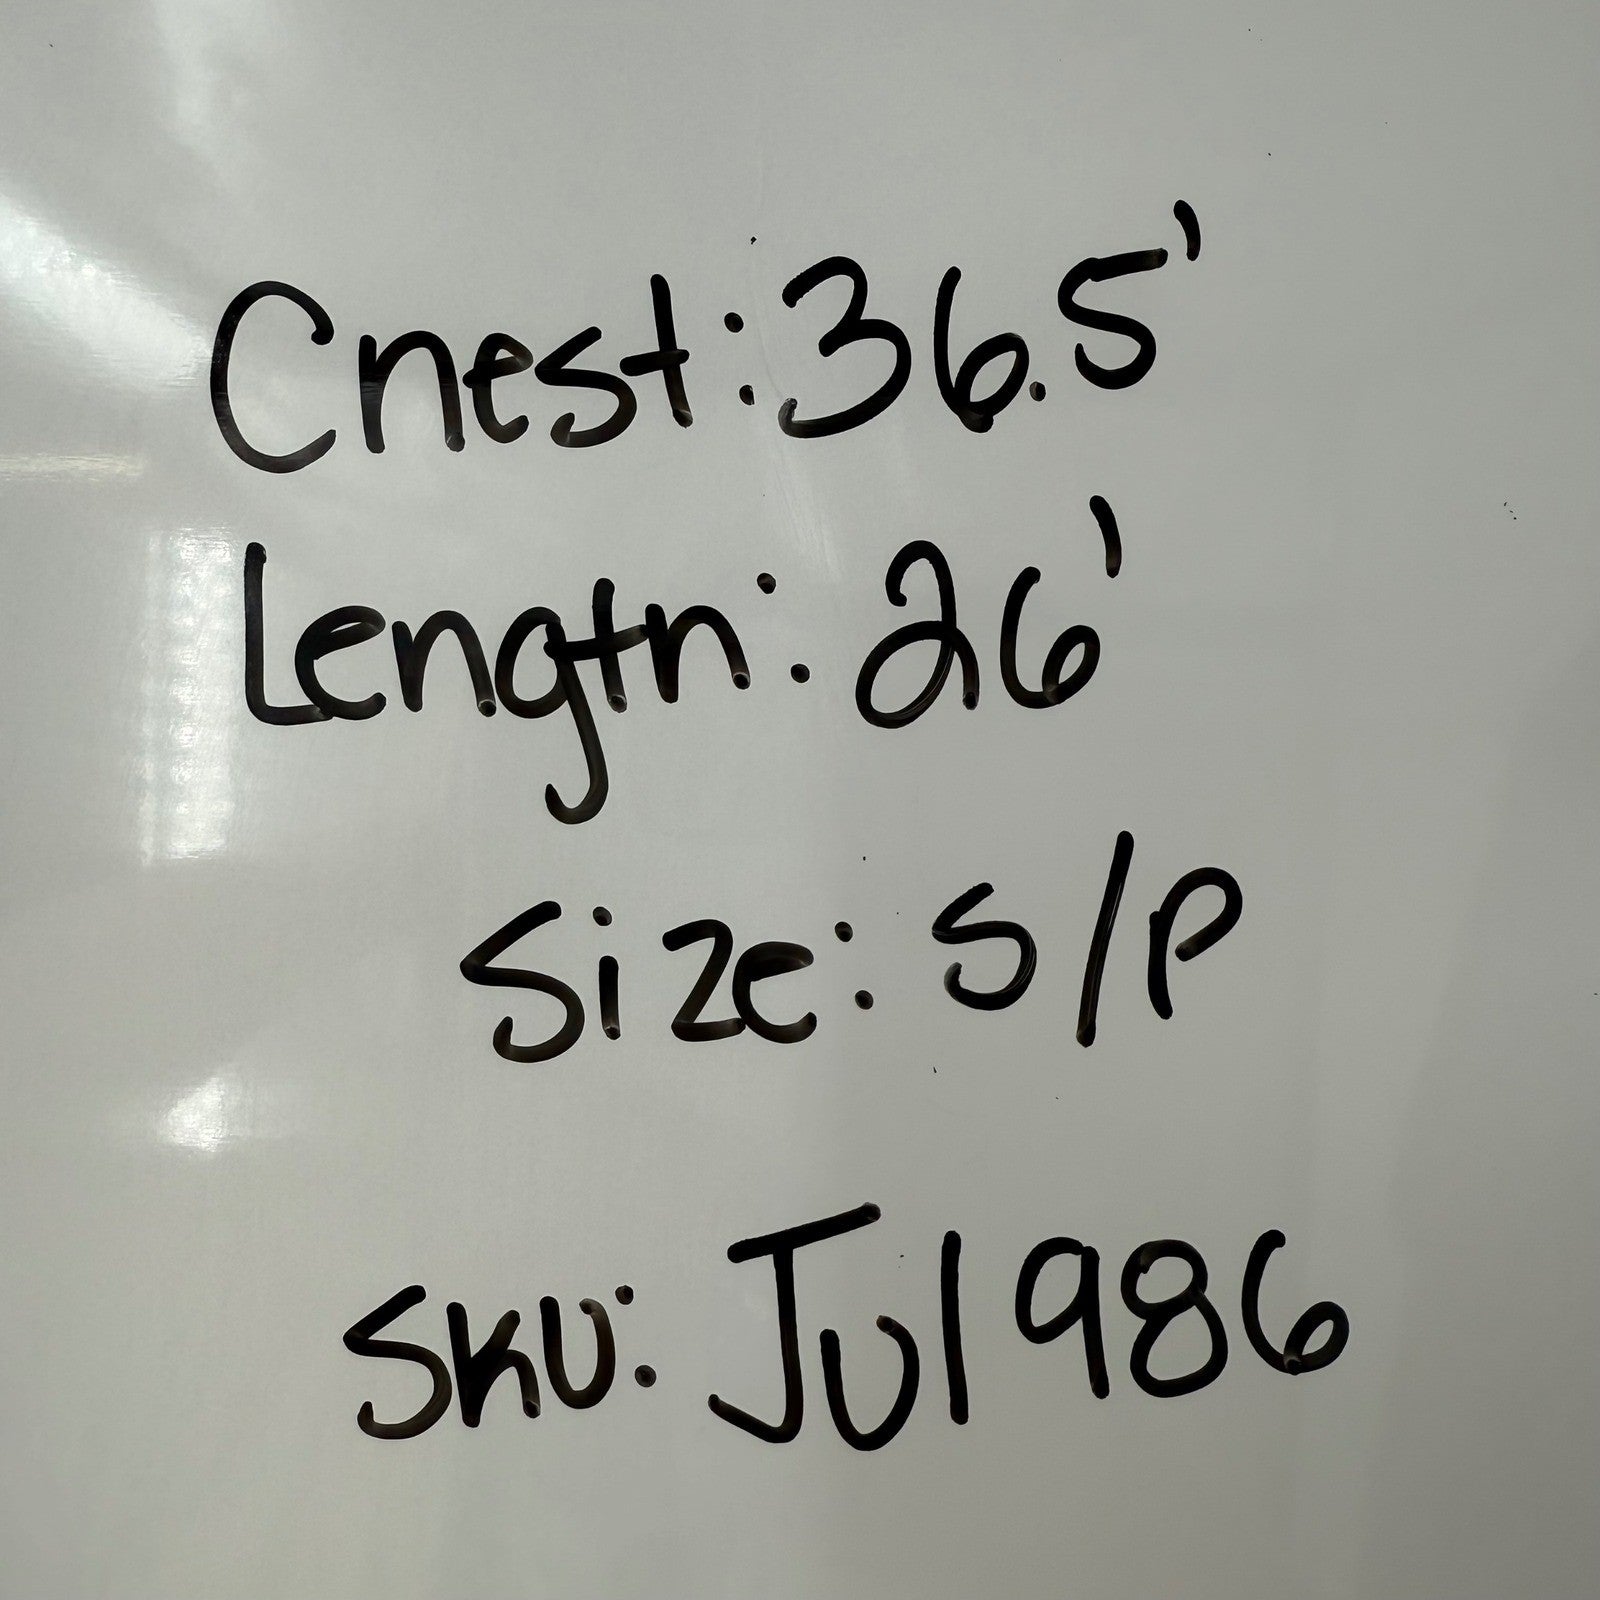 Chest: 36.5'
Length: 26'
Size: S/P
SKU: JU1986